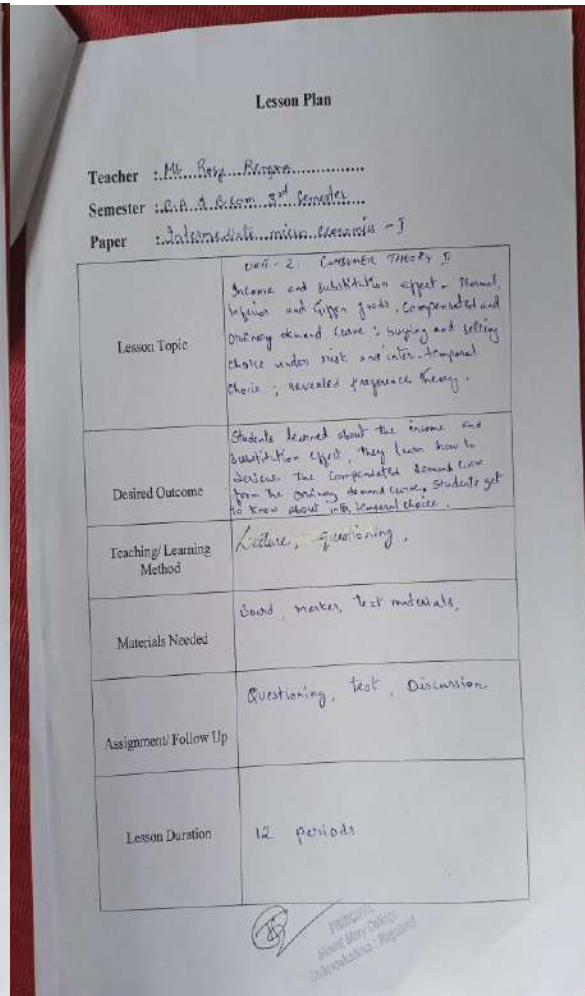 Lesson Plan
Teacher : Ms. Rose
Semester : B.A & B.Com 3rd Semester
Paper : Intermediate micro economics - I
Unit - 2: CONSUMER THEORY II
Income and substitution effect - Normal,
Inferior and Giffen goods, Compensated and
ordinary demand curve ; buying and selling
Lesson Topic
choice under risk and inter-temporal
choice ; revealed preference theory.
Students learned about the income and
substitution effect, they learn how to
derive the compensated demand curve
Desired Outcome
from the ordinary demand curve, students get
to know about inter temporal choice.
Teaching/ Learning
Method
Lecture, questioning,
Materials Needed
Board, marker, text materials,
Assignment/ Follow Up
Questioning, test, Discussion
Lesson Duration
12 periods
PRINCIPAL
Mount Mary College
Chumoukedima : Nagaland